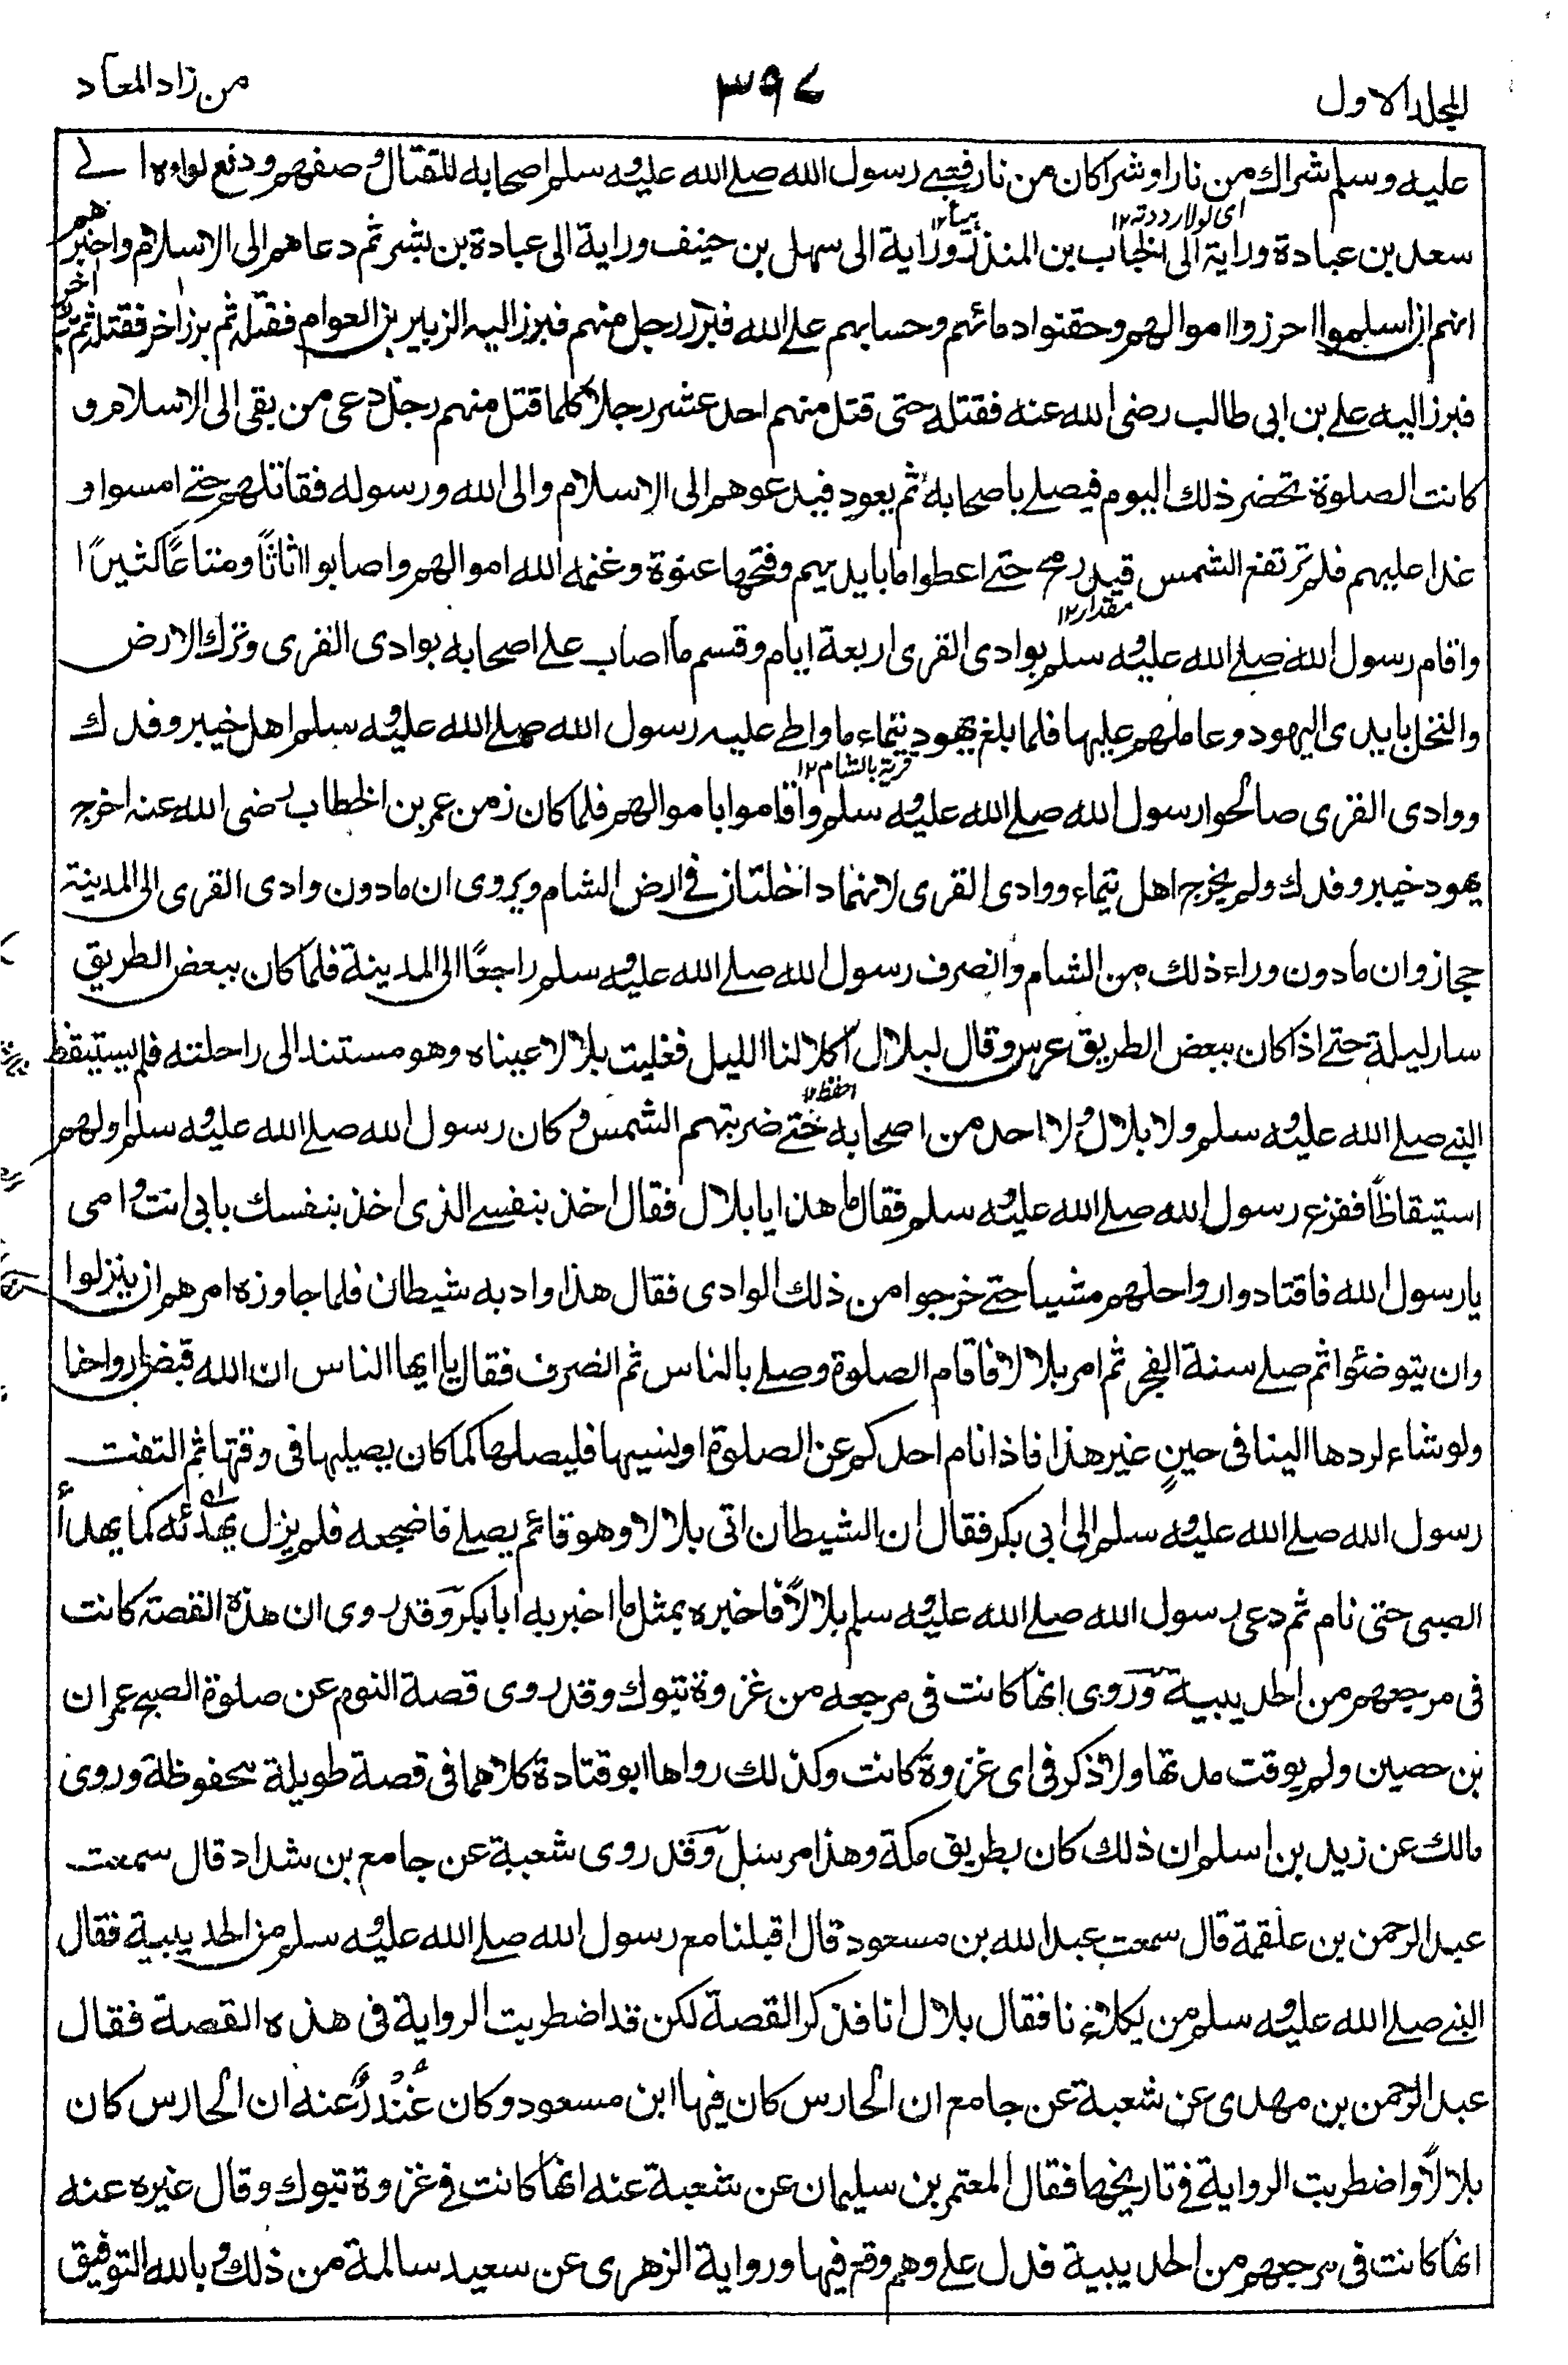 المجلد الاول
٣٩٧
من زاد المعاد
عليه وسلم شراك من نار او شراكان من نار فعبى رسول الله صلے الله عليه وسلم اصحابه للقتال وصفهم ودفع لواءه الے
اى لولا رددته ١٢
سعد بن عبادة وراية الى الحباب بن المنذر وراية الى سهل بن حنيف وراية الى عبادة بن بشر ثم دعاهم الى الاسلام واخبرهم
انهم ان اسلموا احرزوا اموالهم وحقنوا دمائهم وحسابهم علے الله فبرز رجل منهم فبرز اليه الزبير بن العوام فقتله ثم برز اخر فقتله ثم برز اخر
فبرز اليه علے بن ابى طالب رضى الله عنه فقتله حتى قتل منهم احد عشر رجلا كلما قتل منهم رجل دعى من بقى الى الاسلام و
كانت الصلوة تحضر ذلك اليوم فيصلے باصحابه ثم يعود فيدعوهم الى الاسلام والى الله ورسوله فقاتلهم حتے امسوا و
غدا عليهم فلم ترتفع الشمس قيد رمح حتے اعطوا ما بايديهم وفتحها عنوة وغنمه الله اموالهم واصابوا اثاثًا ومتاعًا كثيرًا
مقدار ١٢
واقام رسول الله صلے الله عليه وسلم بوادى القرى اربعة ايام وقسم ما اصاب علے اصحابه بوادى القرى وترك الارض
والنخل بايدى اليهود وعاملهم عليها فلما بلغ يهود تيماء ما واطے عليه رسول الله صلے الله عليه وسلم اهل خيبر وفدك
قرية بالشام ١٢
ووادى القرى صالحوا رسول الله صلے الله عليه وسلم واقاموا باموالهم فلما كان زمن عمر بن الخطاب رضى الله عنه اخرج
يهود خيبر وفدك ولم يخرج اهل تيماء ووادى القرى لانهما داخلتان فے ارض الشام ويروى ان مادون وادى القرى الى المدينة
حجاز وان مادون وراء ذلك من الشام وانصرف رسول الله صلے الله عليه وسلم راجعًا الى المدينة فلما كان ببعض الطريق
سار ليلة حتے اذا كان ببعض الطريق عرس وقال لبلال اكلا لنا الليل فغلبت بلالا عيناه وهو مستند الى راحلته فلم يستيقظ
احفظ ١٢
النبے صلے الله عليه وسلم ولا بلال ولا احد من اصحابه حتے ضربتهم الشمس وكان رسول الله صلے الله عليه وسلم اولهم
استيقاظًا ففزع رسول الله صلے الله عليه وسلم فقال ما هذا يا بلال فقال اخذ بنفسے الذى اخذ بنفسك بابى انت وامى
يا رسول الله فاقتادوا رواحلهم مشيا حتے خرجوا من ذلك الوادى فقال هذا واد به شيطان فلما جاوزه امرهم ان ينزلوا
وان يتوضئوا ثم صلے سنة الفجر ثم امر بلالا فاقام الصلوة وصلے بالناس ثم انصرف فقال يا ايها الناس ان الله قبض ارواحنا
ولو شاء لردها الينا فى حينٍ غير هذا فاذا نام احدكم عن الصلوة او نسيها فليصلها كما كان يصليها فى وقتها ثم التفت
رسول الله صلے الله عليه وسلم الى ابى بكر فقال ان الشيطان اتى بلالا وهو قائم يصلے فاضجعه فلم يزل يهدئه كما يهدأ
الصبى حتى نام ثم دعى رسول الله صلے الله عليه وسلم بلالاً فاخبره بمثل ما اخبر به ابا بكر وقد روى ان هذه القصة كانت
فى مرجعهم من الحديبية وروى انها كانت فى مرجعه من غزوة تبوك وقد روى قصة النوم عن صلوة الصبح عمران
بن حصين ولم يوقت مدتها ولا ذكر فى اى غزوة كانت وكذلك رواها ابو قتادة كلاهما فى قصة طويلة محفوظة وروى
مالك عن زيد بن اسلم ان ذلك كان بطريق مكة وهذا مرسل وقد روى شعبة عن جامع بن شداد قال سمعت
عبد الرحمن بن علقمة قال سمعت عبد الله بن مسعود قال اقبلنا مع رسول الله صلے الله عليه وسلم من الحديبية فقال
النبے صلے الله عليه وسلم من يكلاءنا فقال بلال انا فذكر القصة لكن قد اضطربت الرواية فى هذه القصة فقال
عبد الرحمن بن مهدى عن شعبة عن جامع ان الحارس كان فيها ابن مسعود وكان غُنْدَرٌ عنه ان الحارس كان
بلالاً واضطربت الرواية فے تاريخها فقال المعتمر بن سليمان عن شعبة عنه انها كانت فے غزوة تبوك وقال غيره عنه
انها كانت فى مرجعهم من الحديبية فدل علے وهم وقع فيها ورواية الزهرى عن سعيد سالمة من ذلك وبالله التوفيق